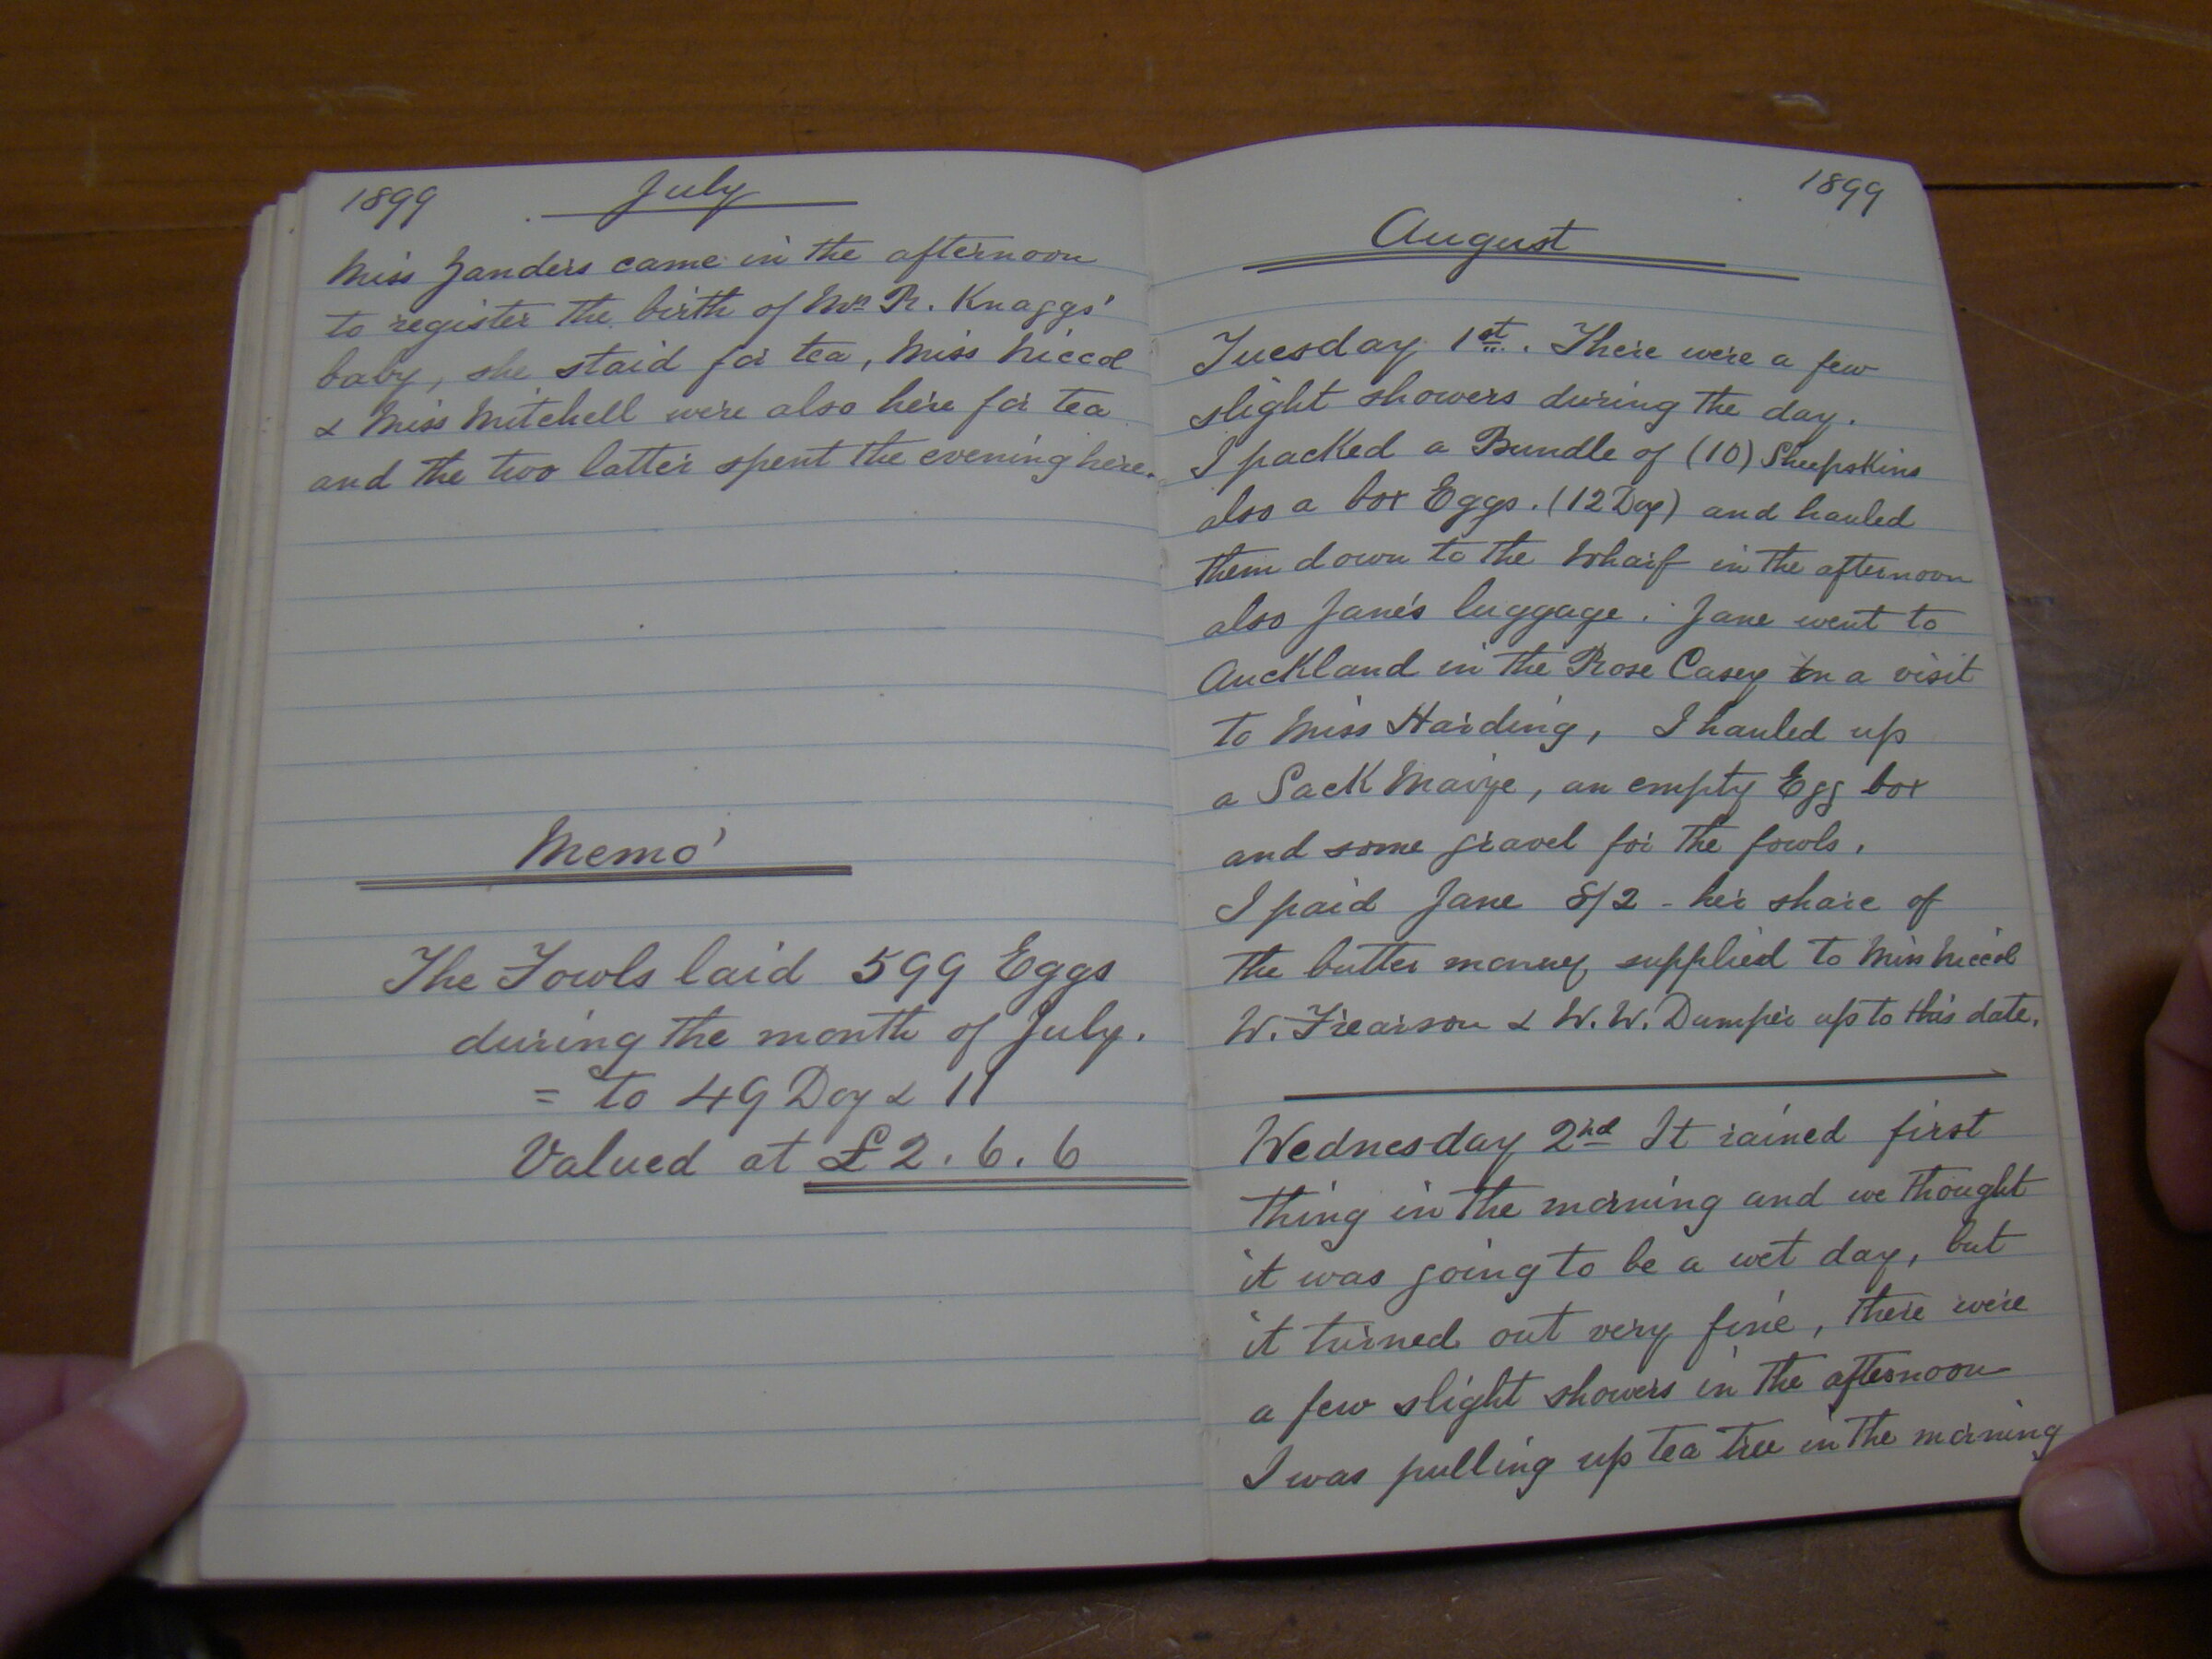 1899 July
Miss Zanders came in the afternoon
to register the birth of Mrs R. Knaggs'
baby, she staid for tea, Miss Niccol
& Miss Mitchell were also here for tea
and the two latter spent the evening here.
Memo'
The Fowls laid 599 Eggs
during the month of July.
= to 49 Doz & 11
Valued at £2.6.6
1899
August
Tuesday 1st. There were a few
slight showers during the day.
I packed a Bundle of (10) Sheepskins
also a box Eggs. (12 Doz) and hauled
them down to the Wharf in the afternoon
also Jane's luggage. Jane went to
Auckland in the Rose Casey on a visit
to Miss Harding, I hauled up
a Sack Maize, an empty Egg box
and some gravel for the fowls.
I paid Jane 8/2 - her share of
the butter money supplied to Miss Niccol
W. Frearson & W. W. Dumper up to this date.
Wednesday 2nd It rained first
thing in the morning and we thought
it was going to be a wet day, but
it turned out very fine, there were
a few slight showers in the afternoon
I was pulling up tea tree in the morning